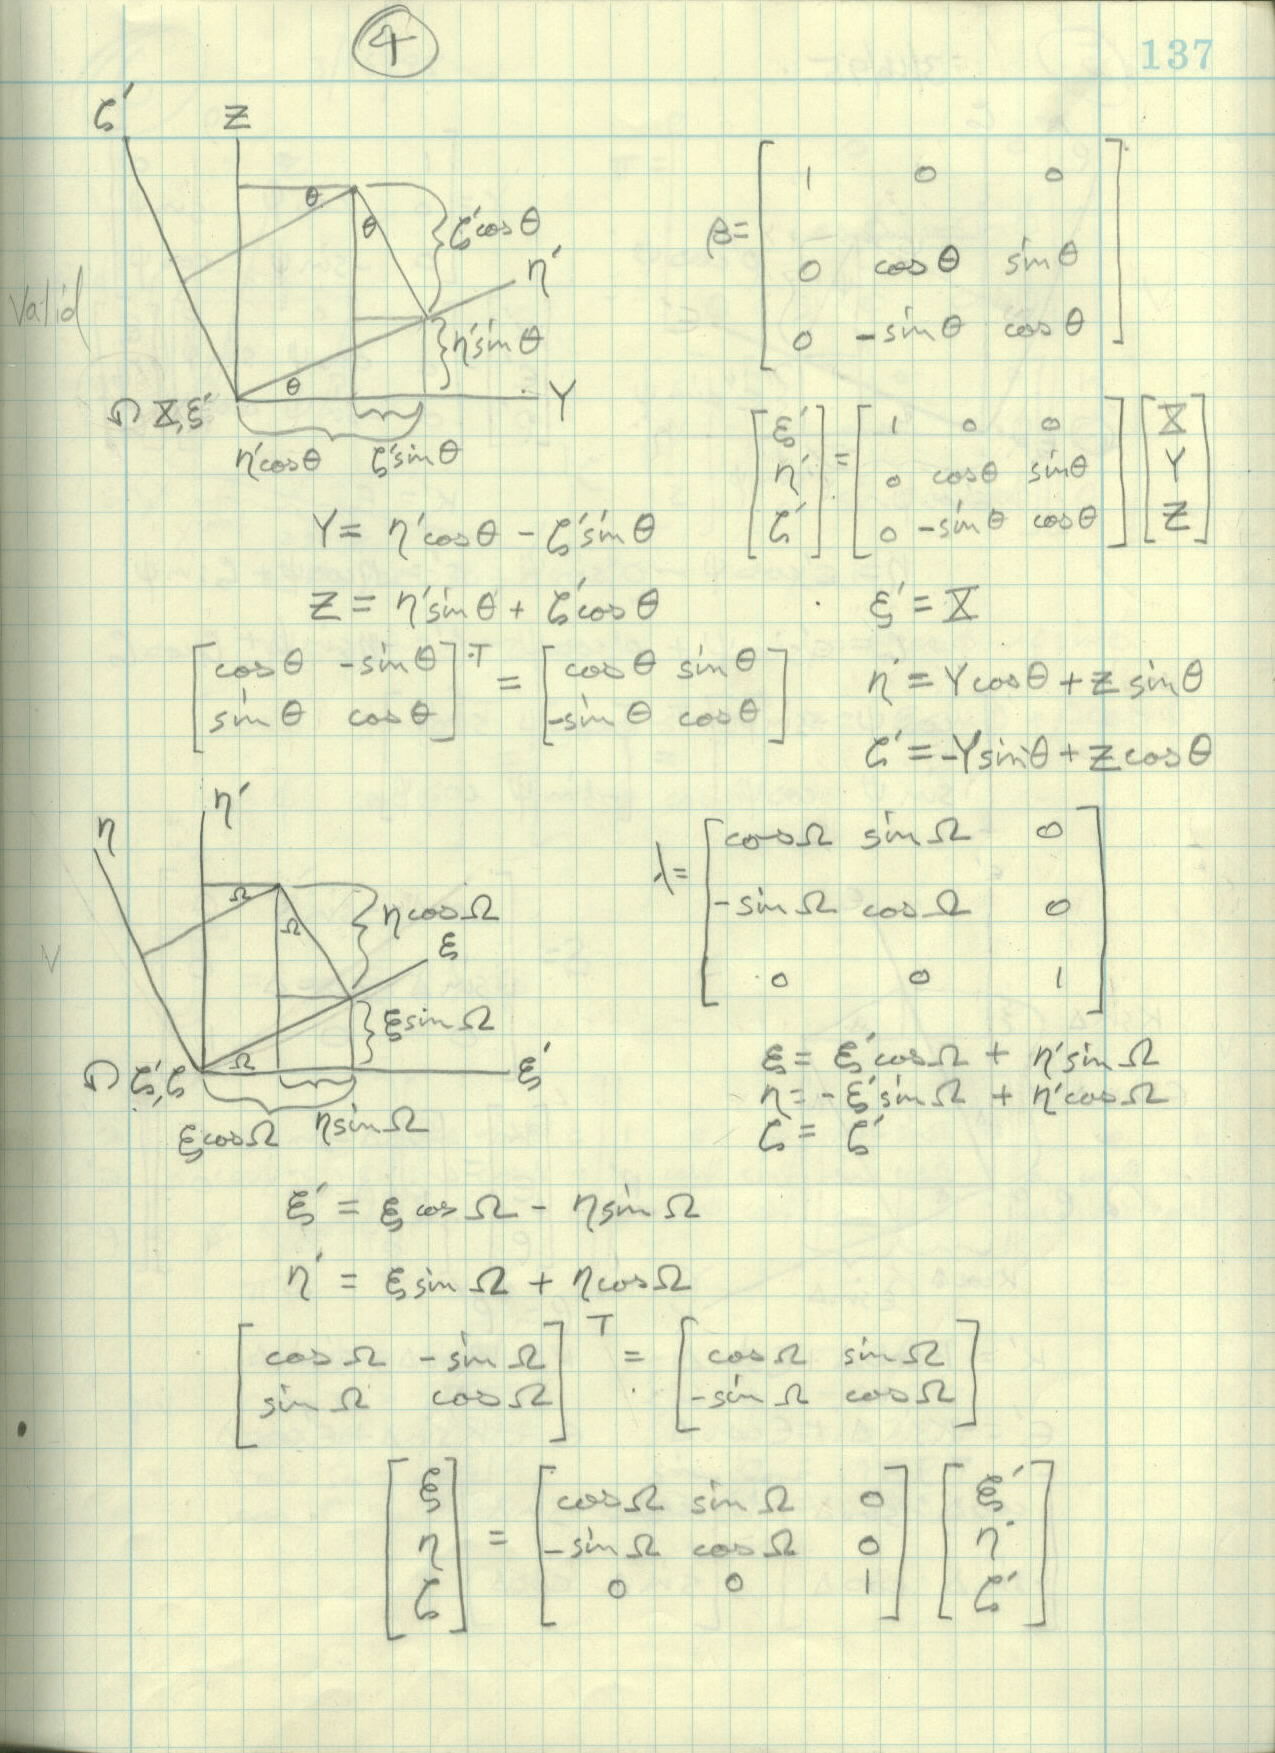 4
137
ζ′ Z
θ
θ
ζ′cos θ
η′
η′sin θ
θ
Y
X, ξ′
η′cos θ ζ′sin θ
Valid
β = [ 1 0 0
0 cos θ sin θ
0 -sin θ cos θ ]
[ ξ′ ] = [ 1 0 0 ] [ X ]
[ η′ ] [ 0 cos θ sin θ ] [ Y ]
[ ζ′ ] [ 0 -sin θ cos θ ] [ Z ]
Y = η′cos θ - ζ′sin θ
Z = η′sin θ + ζ′cos θ
[ cos θ -sin θ ]T = [ cos θ sin θ ]
[ sin θ cos θ ] [ -sin θ cos θ ]
ξ′ = X
η′ = Y cos θ + Z sin θ
ζ′ = -Y sin θ + Z cos θ
η η′
Ω
Ω
η cos Ω
ξ
ξ sin Ω
Ω
ξ′
ζ′, ζ
ξ cos Ω η sin Ω
V
λ = [ cos Ω sin Ω 0
-sin Ω cos Ω 0
0 0 1 ]
ξ = ξ′cos Ω + η′sin Ω
η = -ξ′sin Ω + η′cos Ω
ζ = ζ′
ξ′ = ξ cos Ω - η sin Ω
η′ = ξ sin Ω + η cos Ω
[ cos Ω -sin Ω ]T = [ cos Ω sin Ω ]
[ sin Ω cos Ω ] [ -sin Ω cos Ω ]
[ ξ ] = [ cos Ω sin Ω 0 ] [ ξ′ ]
[ η ] [ -sin Ω cos Ω 0 ] [ η′ ]
[ ζ ] [ 0 0 1 ] [ ζ′ ]